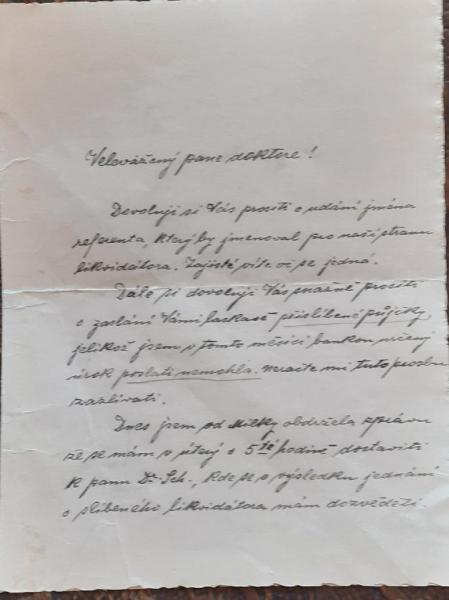 Velevážený pane doktore!
Dovoluji si Vás prositi o udání jména
referenta, který by jmenoval pro naši stranu
likvidátora. Zajisté víte oč se jedná.
Dále si dovoluji Vás snažně prositi
o zaslání Vámi laskavě přislíbené půjčky,
jelikož jsem v tomto měsíci bankou určený
úrok poslati nemohla. Neračte mi tuto prosbu
zazlívati.
Dnes jsem od Milky obdržela zprávu
že se mám v úterý o 5té hodině dostaviti
k panu Dr. Sch., kde se o výsledku jednání
o slíbeného likvidátora mám dozvěděti.